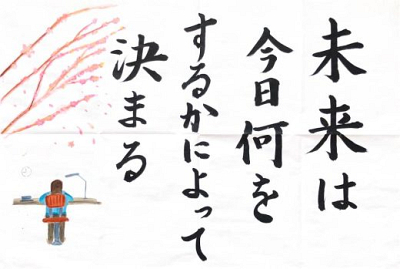 未来は
今日何を
するかによって
決まる